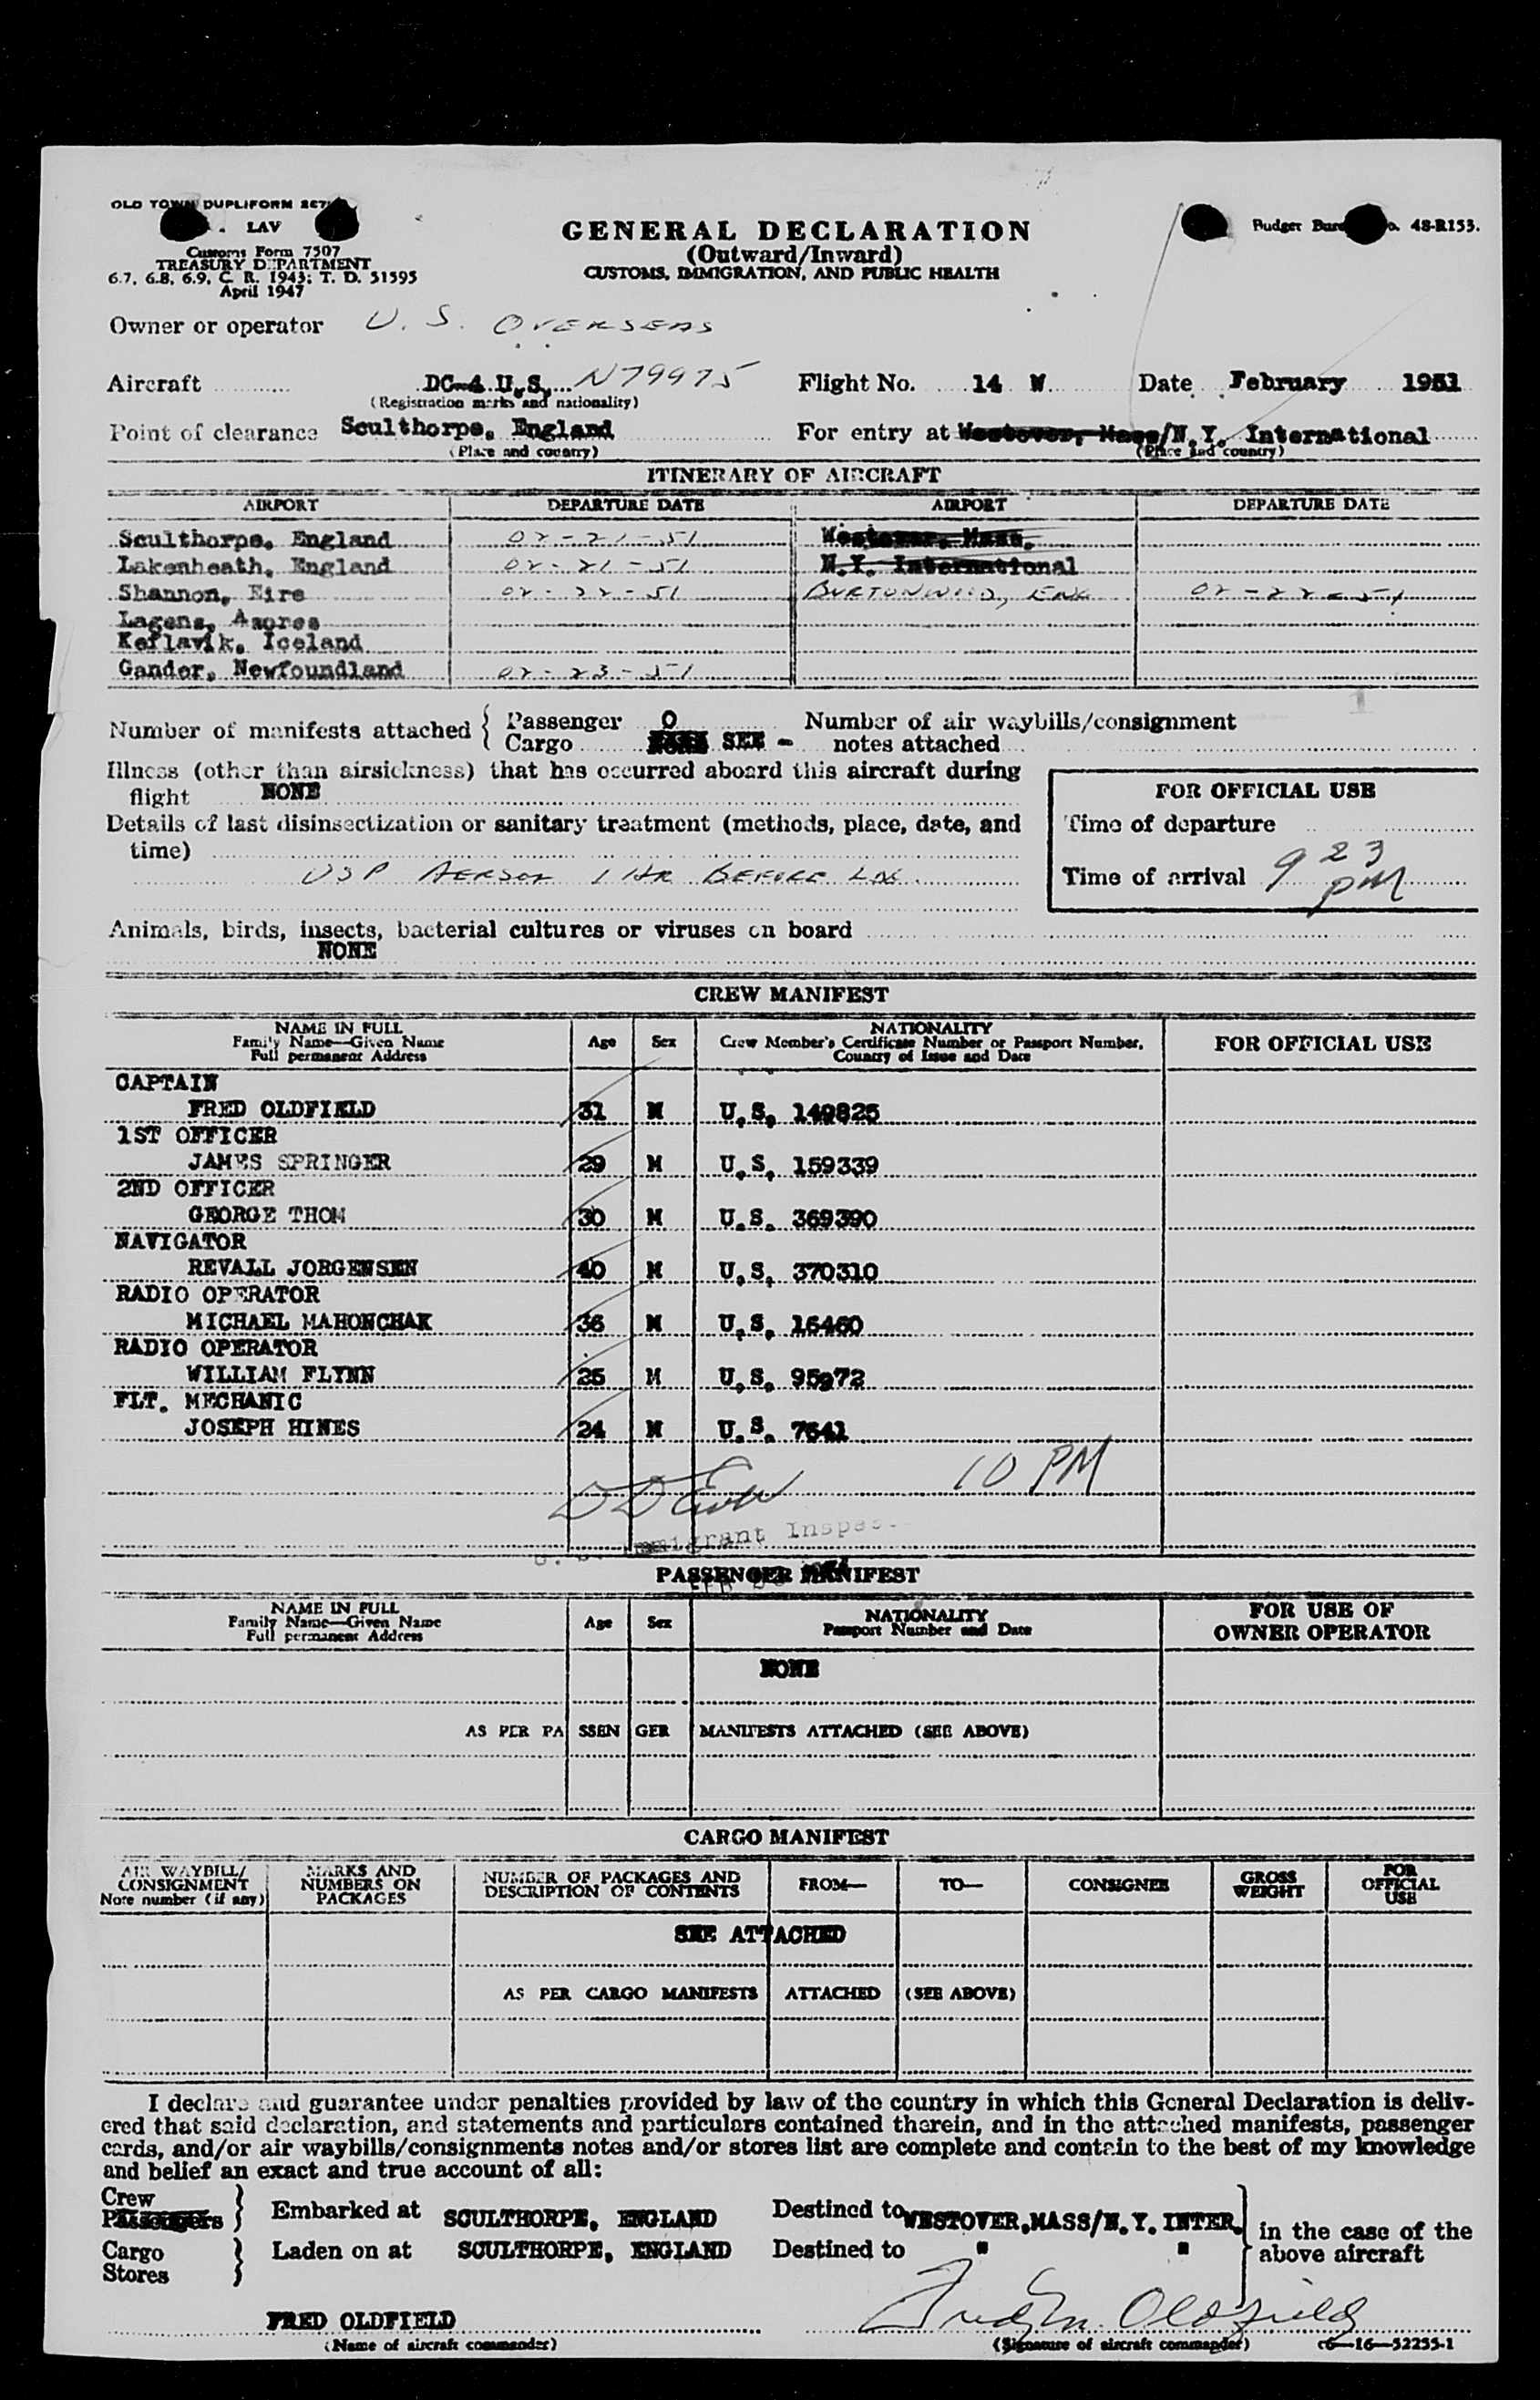 OLD TOWN DUPLIFORM
LAV
Customs Form 7507
TREASURY DEPARTMENT
6.7, 6.8, 6.9, C. R. 1943; T. D. 51595
April 1947
GENERAL DECLARATION
(Outward/Inward)
CUSTOMS, IMMIGRATION, AND PUBLIC HEALTH
Budget 48-R153.
Owner or operator U. S. OVERSEAS
Aircraft DC-4 U.S. N79975 Flight No. 14 W Date February 1951
(Registration marks and nationality)
Point of clearance Sculthorpe, England For entry at Westover, Mass/N.Y. International
(Place and country) (Place and country)
ITINERARY OF AIRCRAFT
AIRPORT DEPARTURE DATE AIRPORT DEPARTURE DATE
Sculthorpe, England 02-21-51 Westover, Mass.
Lakenheath, England 02-21-51 N.Y. International
Shannon, Eire 02-22-51 BURTONWOOD, ENG 02-22-51
Lagens, Azores
Keflavik, Iceland
Gander, Newfoundland 02-23-51
Number of manifests attached { Passenger 0 Number of air waybills/consignment
Cargo SEE - notes attached
Illness (other than airsickness) that has occurred aboard this aircraft during
flight NONE
FOR OFFICIAL USE
Details of last disinsectization or sanitary treatment (methods, place, date, and
time)
Time of departure
USP AERSOL 1 HR BEFORE LDG.
Time of arrival 9 23 PM
Animals, birds, insects, bacterial cultures or viruses on board
NONE
CREW MANIFEST
NAME IN FULL
Family Name—Given Name
Full permanent Address
Age Sex
NATIONALITY
Crew Member's Certificate Number or Passport Number,
Country of Issue and Date
FOR OFFICIAL USE
CAPTAIN
FRED OLDFIELD 31 M U.S. 149825
1ST OFFICER
JAMES SPRINGER 29 M U.S. 159339
2ND OFFICER
GEORGE THOM 30 M U.S. 369390
NAVIGATOR
REVALL JORGENSEN 40 M U.S. 370310
RADIO OPERATOR
MICHAEL MAHONCHAK 36 M U.S. 16460
RADIO OPERATOR
WILLIAM FLYNN 25 M U.S. 95972
FLT. MECHANIC
JOSEPH HINES 24 M U.S. 7641
10 PM
Immigrant Inspec
PASSENGER MANIFEST
NAME IN FULL
Family Name—Given Name
Full permanent Address
Age Sex
NATIONALITY
Passport Number and Date
FOR USE OF
OWNER OPERATOR
NONE
AS PER PASSENGER MANIFESTS ATTACHED (SEE ABOVE)
CARGO MANIFEST
AIR WAYBILL/
CONSIGNMENT
Note number (if any)
MARKS AND
NUMBERS ON
PACKAGES
NUMBER OF PACKAGES AND
DESCRIPTION OF CONTENTS
FROM— TO— CONSIGNEE
GROSS
WEIGHT
FOR
OFFICIAL
USE
SEE ATTACHED
AS PER CARGO MANIFESTS ATTACHED (SEE ABOVE)
I declare and guarantee under penalties provided by law of the country in which this General Declaration is deliv-
ered that said declaration, and statements and particulars contained therein, and in the attached manifests, passenger
cards, and/or air waybills/consignments notes and/or stores list are complete and contain to the best of my knowledge
and belief an exact and true account of all:
Crew
Passengers } Embarked at SCULTHORPE, ENGLAND Destined to WESTOVER,MASS/N.Y. INTER. } in the case of the
Cargo } Laden on at SCULTHORPE, ENGLAND Destined to " " above aircraft
Stores
FRED OLDFIELD Fred M. Oldfield
(Name of aircraft commander) (Signature of aircraft commander) c6—16—52255-1